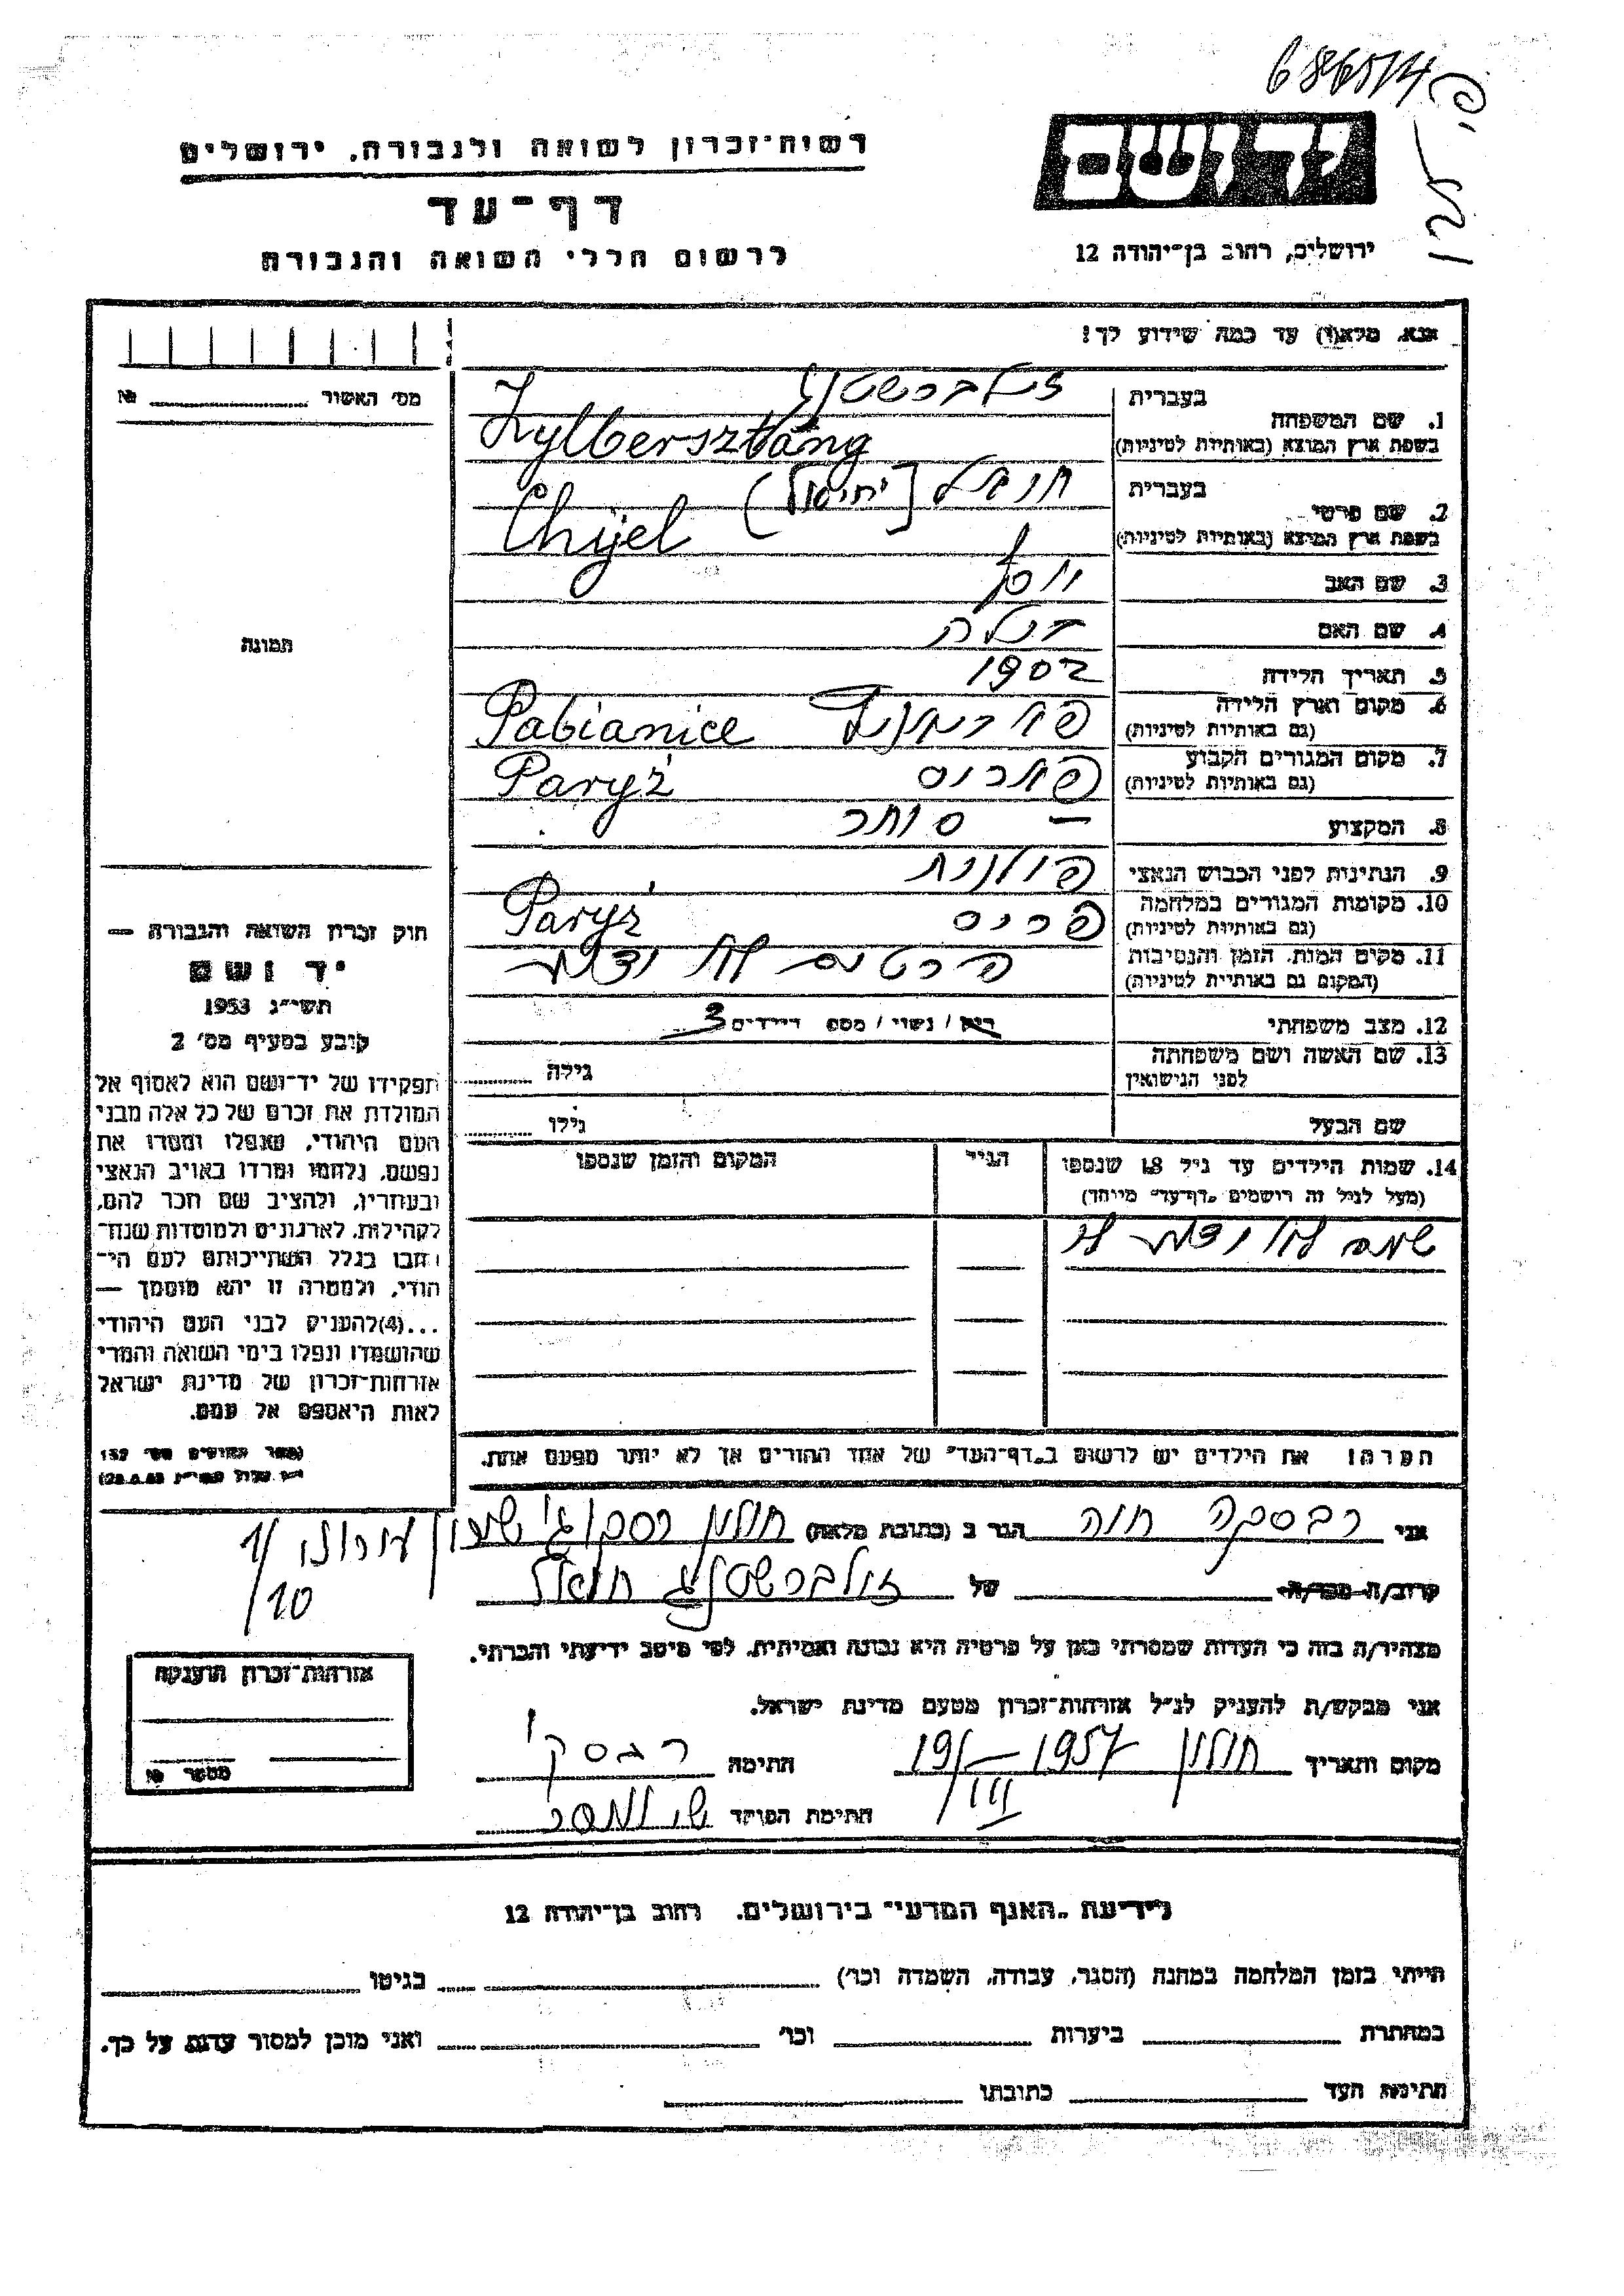 686514
יד ושם
ירושלים, רחוב בן־יהודה 12
רשות־זכרון לשואה ולגבורה, ירושלים
דף־עד
לרשום חללי השואה והגבורה
אנא, מלא(י) עד כמה שידוע לך!
מס' האשור № ________
תמונה
חוק זכרון השואה והגבורה —
יד ושם
תשי״ג 1953
קובע בסעיף מס' 2
תפקידו של יד־ושם הוא לאסוף אל
המולדת את זכרם של כל אלה מבני
העם היהודי, שנפלו ומסרו את
נפשם, נלחמו ומרדו באויב הנאצי
ובעוזריו, ולהציב שם וזכר להם,
לקהילות, לארגונים ולמוסדות שנח־
רבו בגלל השתייכותם לעם הי־
הודי, ולמטרה זו יהא מוסמך —
...(4)להעניק לבני העם היהודי
שהושמדו ונפלו בימי השואה והמרי
אזרחות־זכרון של מדינת ישראל
לאות היאספם אל עמם.
1. שם המשפחה בעברית זילברשטנג
בשפת ארץ המוצא (באותיות לטיניות) Zylbersztang
2. שם פרטי בעברית חיאל [יחיאל]
בשפת ארץ המוצא (באותיות לטיניות) Chijel
3. שם האב יוסף
4. שם האם
5. תאריך הלידה 1902
6. מקום וארץ הלידה (גם באותיות לטיניות) Pabianice
7. מקום המגורים הקבוע (גם באותיות לטיניות) פאריס Paryż
8. המקצוע — סוחר
9. הנתינות לפני הכבוש הנאצי פולנית
10. מקומות המגורים במלחמה (גם באותיות לטיניות) פריס Paryż
11. מקום המות, הזמן והנסיבות (המקום גם באותיות לטיניות) פרטים לא ידוע
12. מצב משפחתי רווק/נשוי/מספר הילדים 3
13. שם האשה ושם משפחתה לפני הנישואין גילה
שם הבעל גילו
14. שמות הילדים עד גיל 18 שנספו הגיל המקום והזמן שנספו
(מעל לגיל זה רושמים „דף־עד״ מיוחד)
שמם לא ידוע לי
הערה! את הילדים יש לרשום ב„דף־העד״ של אחד ההורים אך לא יותר מפעם אחת.
אני רבסקה חוה הגר ב (כתובת מלאה) חולון
1/10
קרוב/ה מכר/ה של זילברשטנג חיאל
מצהיר/ה בזה כי העדות שמסרתי כאן על פרטיה היא נכונה ואמיתית, לפי מיטב ידיעתי והכרתי.
אני מבקש/ת להעניק לנ״ל אזרחות־זכרון מטעם מדינת ישראל.
מקום ותאריך חולון 19/III — 1957 חתימה
חתימת הפוקד
אזרחות־זכרון הוענקה
מספר №
לידיעת „האגף המדעי״ בירושלים, רחוב בן־יהודה 12
הייתי בזמן המלחמה במחנה (הסגר, עבודה, השמדה וכו') בגיטו
במחתרת ביערות וכו' ואני מוכן למסור עדות על כך.
חתימת העד כתובתו